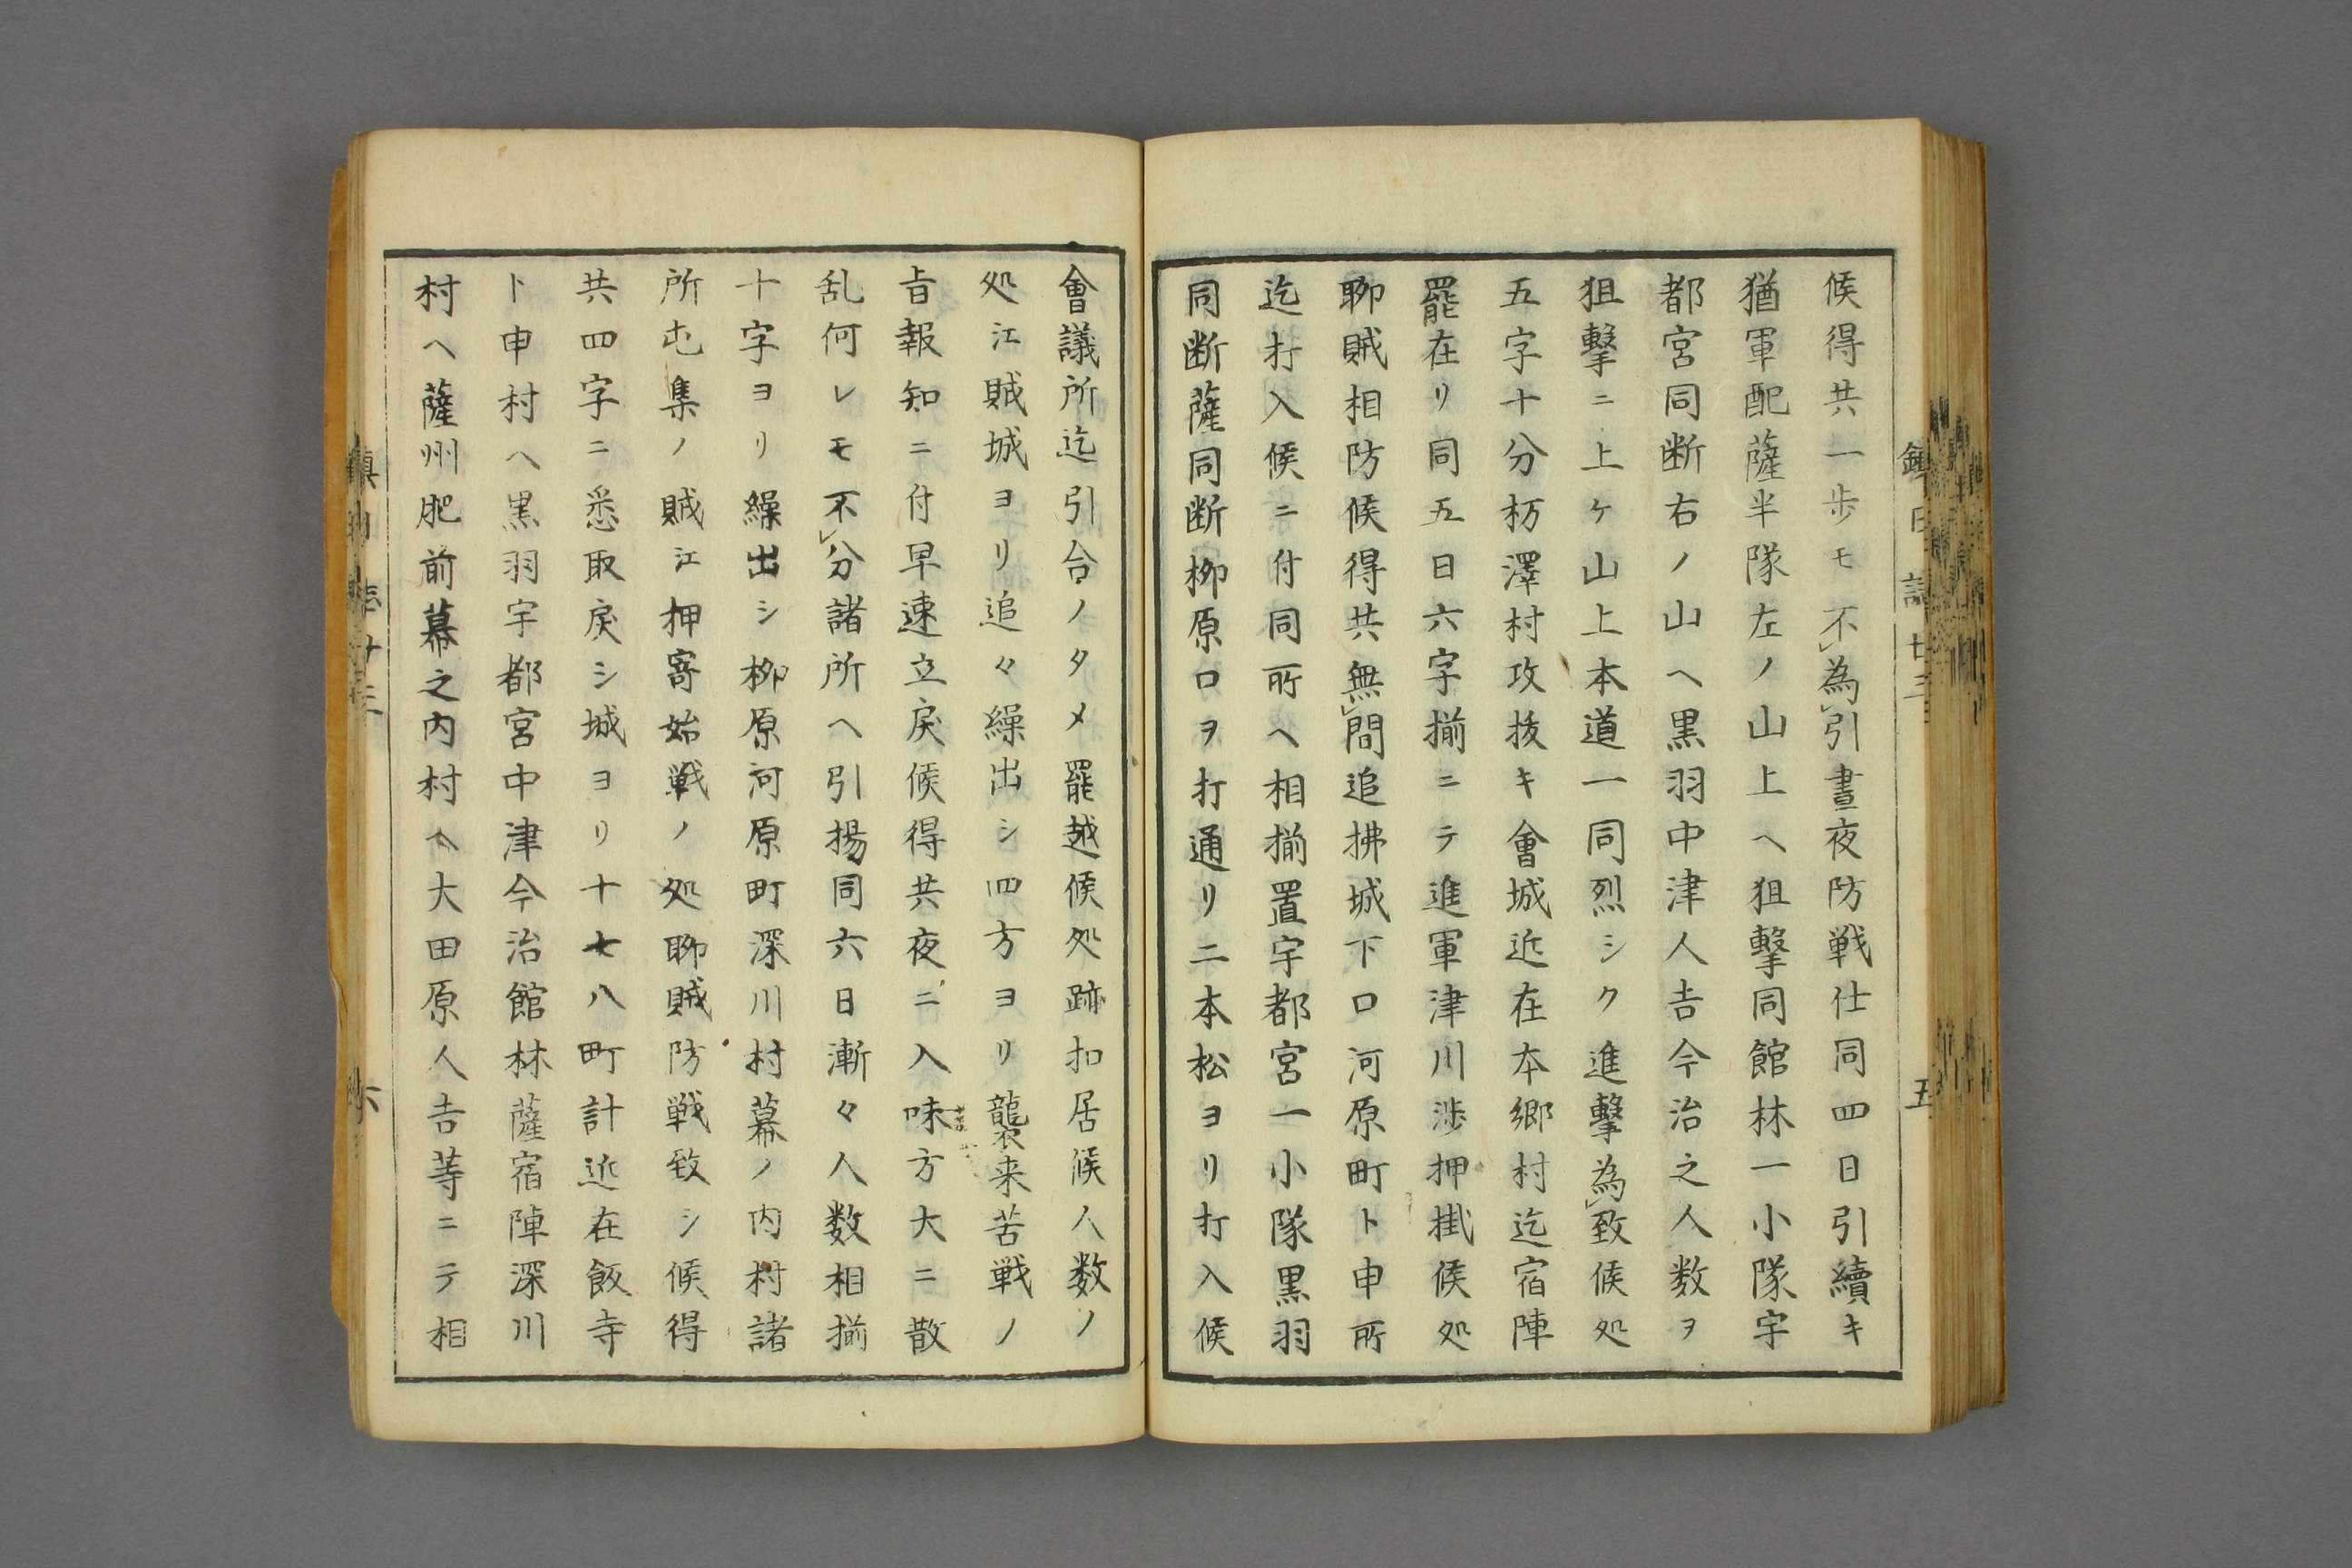 候得共一歩モ不レ為レ引晝夜防戦仕同四日引續キ
猶軍配薩半隊左ノ山上ヘ狙撃同館林一小隊宇
都宮同断右ノ山ヘ黒羽中津人吉今治之人数ヲ
狙撃ニ上ケ山上本道一同烈シク進撃為レ致候処
五字十分枋澤村攻抜キ會城近在本郷村迄宿陣
罷在リ同五日六字揃ニテ進軍津川渉押掛候処
聊賊相防候得共無レ間追拂城下口河原町ト申所
迄打入候ニ付同所ヘ相揃置宇都宮一小隊黒羽
同断薩同断柳原口ヲ打通リ二本松ヨリ打入候
會議所迄引合ノタメ罷越候処跡扣居候人数ノ
処江賊城ヨリ追々繰出シ四方ヨリ襲来苦戦ノ
旨報知ニ付早速立戻候得共夜ニ入味方大ニ散
乱何レモ不レ分諸所ヘ引揚同六日漸々人数相揃
十字ヨリ繰出シ柳原河原町深川村幕ノ内村諸
所屯集ノ賊江押寄始戦ノ処聊賊防戦致シ候得
共四字ニ悉取戻シ城ヨリ十七八町計近在飯寺
ト申村ヘ黒羽宇都宮中津今治館林薩宿陣深川
村ヘ薩州肥前幕之内村ヘ大田原人吉等ニテ相